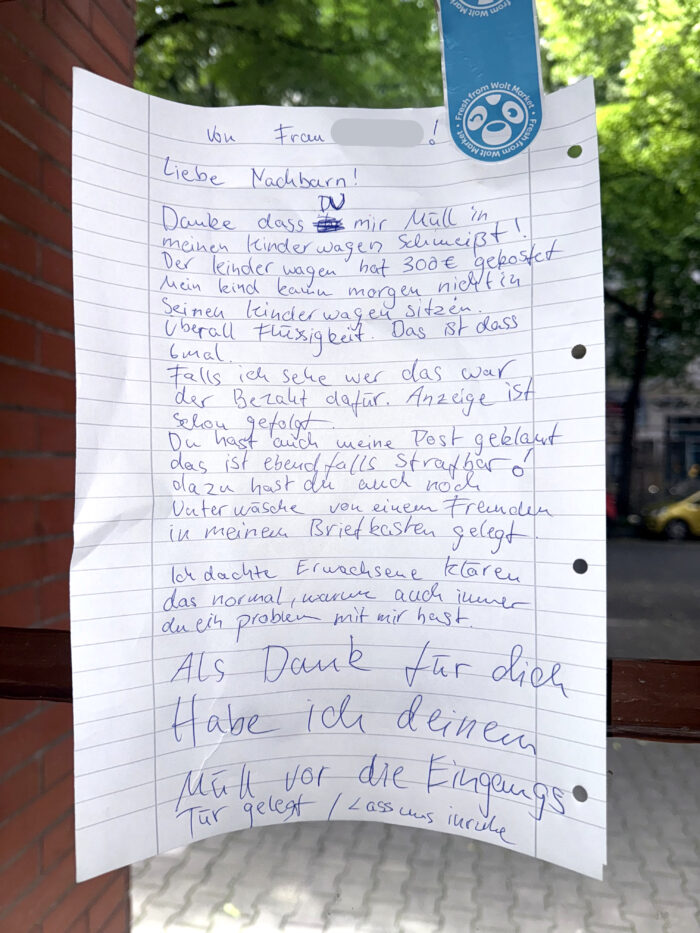 Fresh from Wolt Market • Fresh from Wolt Market •
von Frau !
Liebe Nachbarn!
DU
Danke dass mir Müll in
meinen Kinderwagen Schmeißt!
Der kinderwagen hat 300€ gekostet
Mein kind kann morgen nicht in
Seinen kinderwagen sitzen.
Überall Flüssigkeit. Das ist dass
6mal.
Falls ich sehe wer das war
der Bezaht dafür. Anzeige ist
schon gefolgt.
Du hast auch meine Post geklaut
das ist ebendfalls Strafbar!
dazu hast du auch noch
Unterwäsche von einem Fremden
in meinem Briefkasten gelegt.
Ich dachte Erwachsene klären
das normal, warum auch immer
du ein problem mit mir hast.
Als Dank für dich
Habe ich deinem
Müll vor die Eingangs
Tür gelegt / Lass uns inruhe